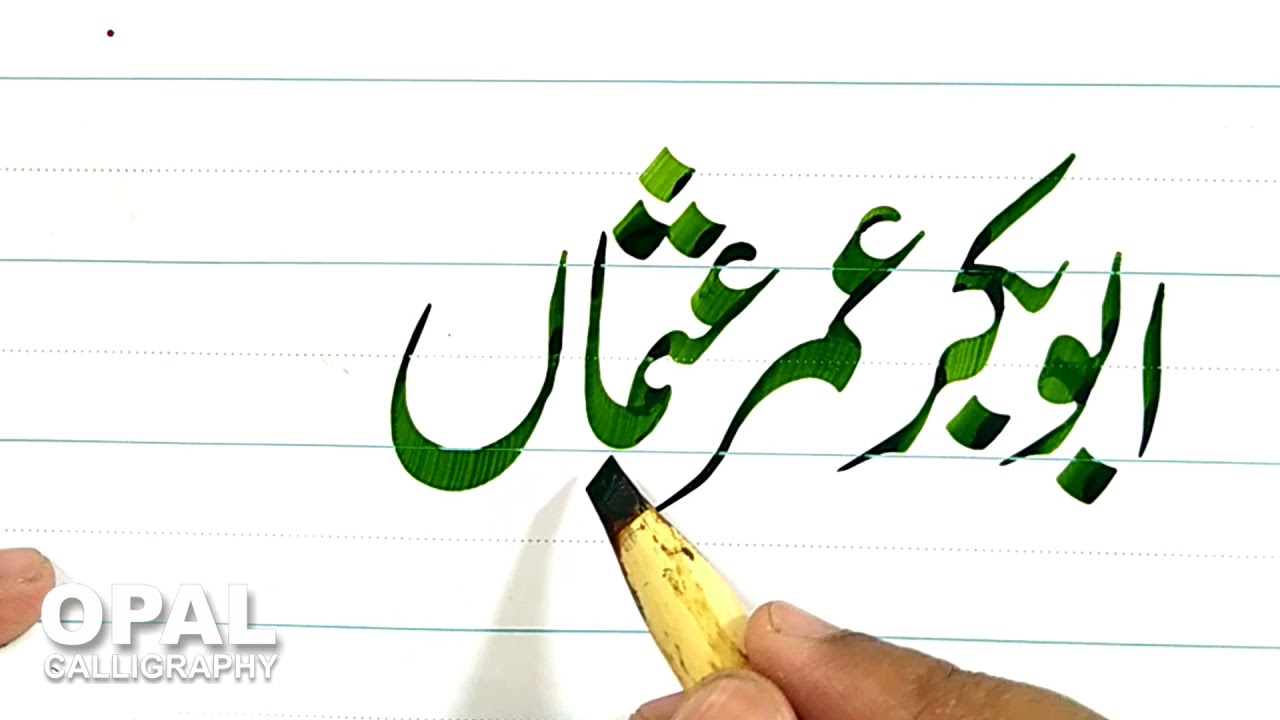 ابوبکر عمر عثماں
OPAL
CALLIGRAPHY